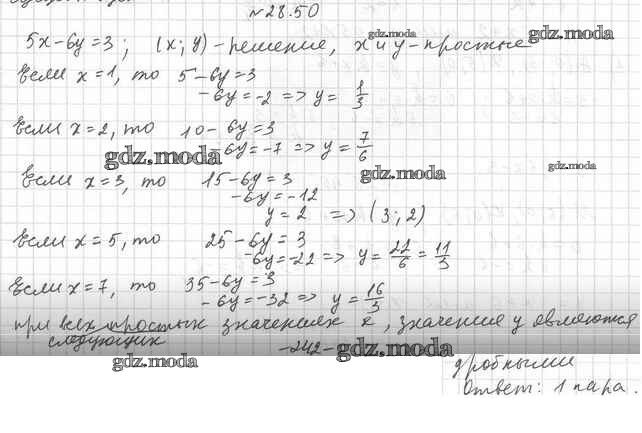 №28.50
5x-6y=3; (x; y)-решение, x и y-простые
gdz.moda
gdz.moda
Если x=1, то 5-6y=3
-6y=-2 => y= 1/3
Если x=2, то 10-6y=3
gdz.moda
-6y=-7 => y= 7/6
gdz.moda
gdz.moda
Если x=3, то 15-6y=3
-6y=-12
y=2 => (3; 2)
Если x=5, то 25-6y=3
-6y=-22 => y= 22/6 = 11/3
Если x=7, то 35-6y=3
-6y=-32 => y= 16/3
при всех простых значениях x, значение y являются
следующих
-242-
gdz.moda
gdz.moda
дробными
Ответ: 1 пара.